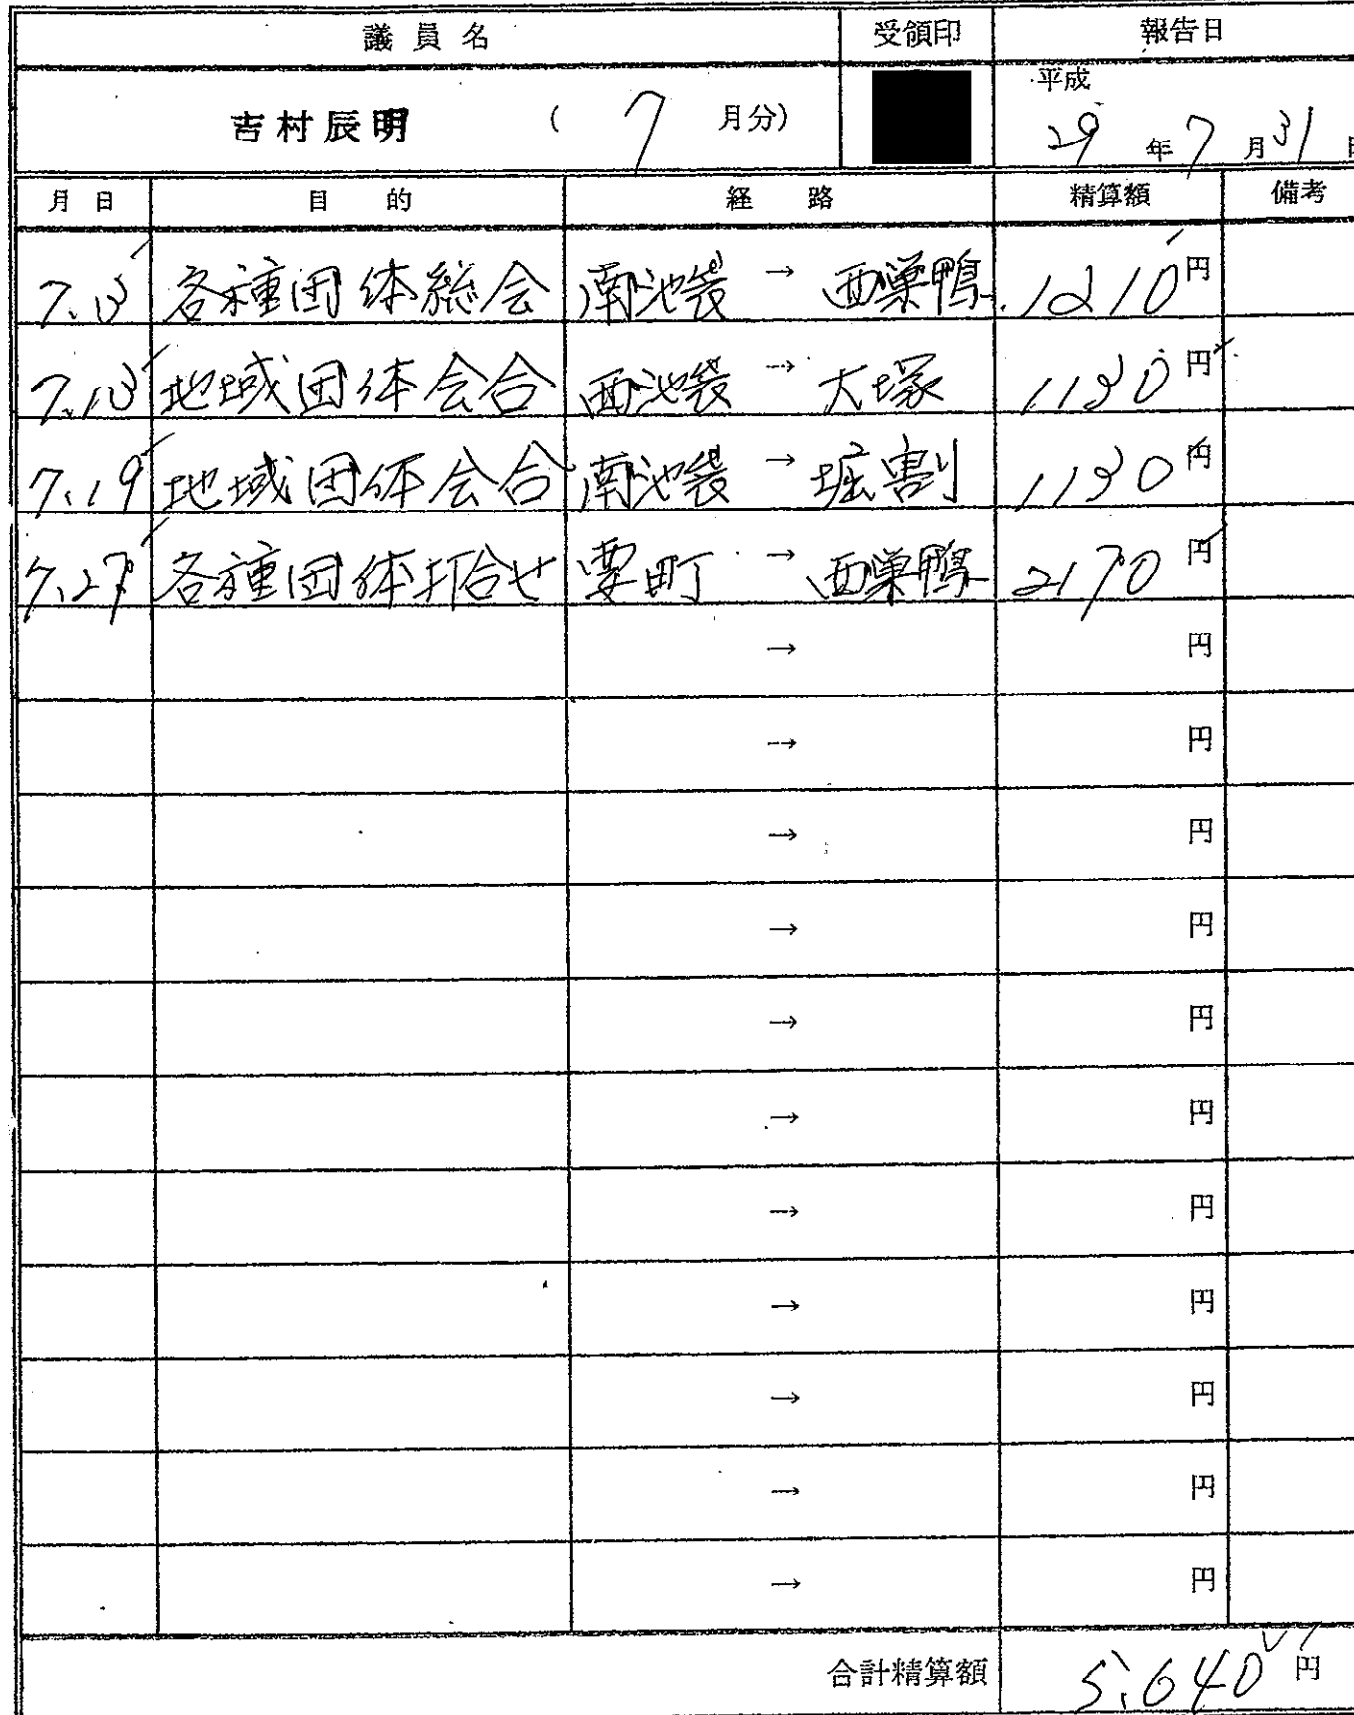 議員名 受領印 報告日
吉村辰明 ( 7 月分) 平成 29 年 7 月 31 日
月日 目的 経路 精算額 備考
7.13 各種団体総会 南池袋 → 西巣鴨 1210円
7.13 地域団体会合 西池袋 → 大塚 1130円
7.19 地域団体会合 南池袋 → 堀割 1130円
7.27 各種団体打合せ 要町 → 西巣鴨 2170円
→ 円
→ 円
→ 円
→ 円
→ 円
→ 円
→ 円
→ 円
→ 円
→ 円
→ 円
合計精算額 5,640円